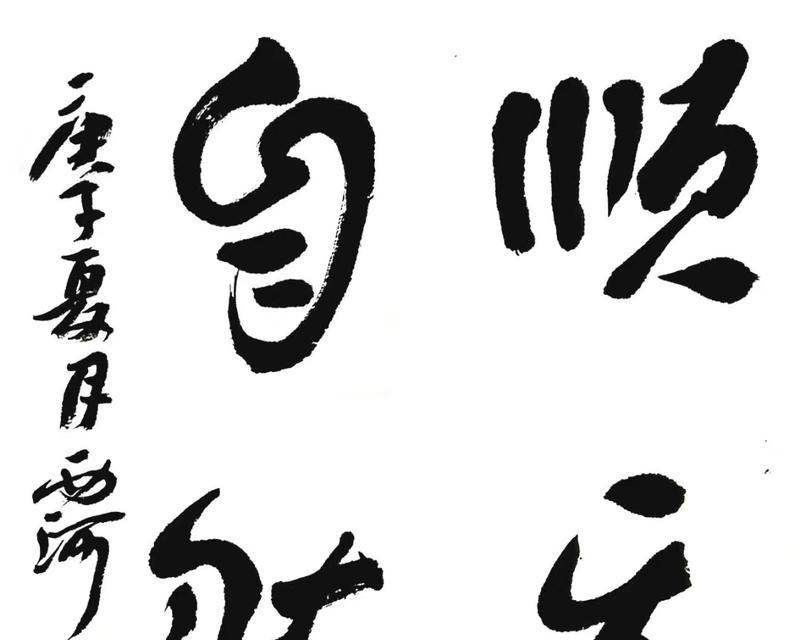 顺
自
庚子夏月西河